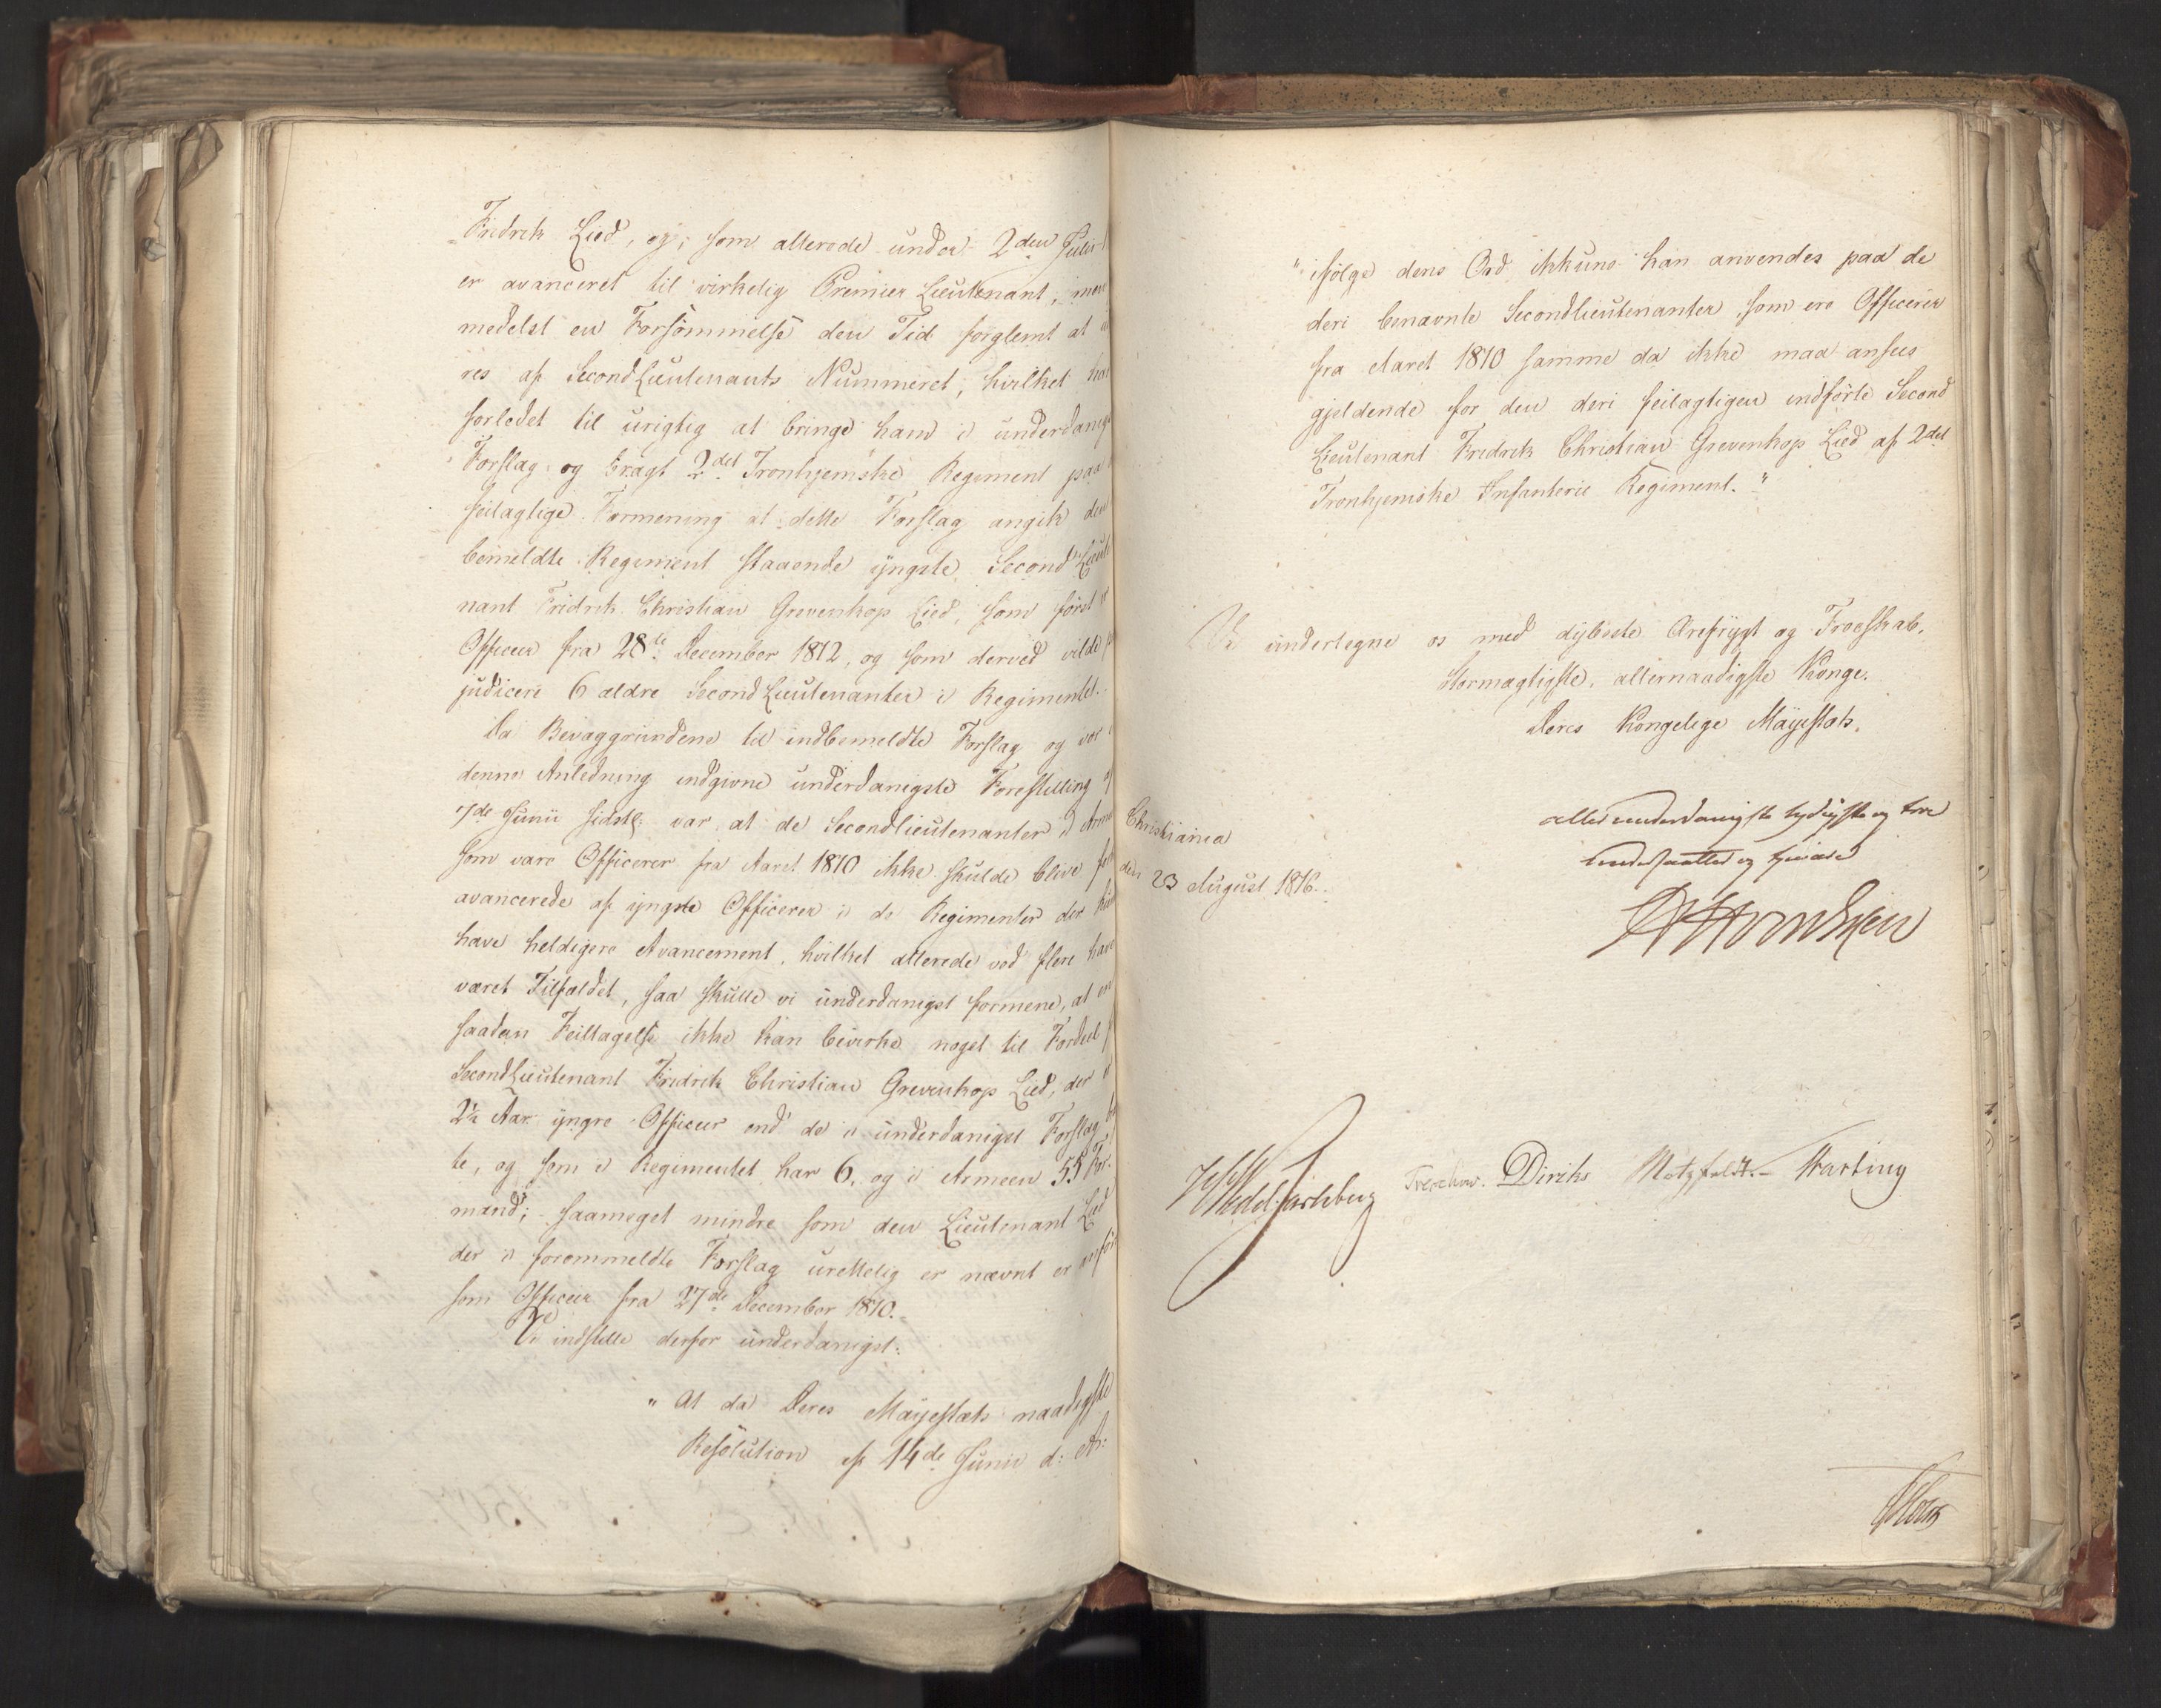 Fridrik Lied, og, som allerede under 2den Julii
er avanceret til virkelig Premier Lieutenant, men
medelst en Forsömmelse den Tid forglemt at
res af Second Lieutenants Nummeret, hvilket har
forledet til urigtig at bringe ham i underdanigst
Forslag og bragt 2det Tronhjemske Regiment paa
feilagtige Formening at dette Forslag angik den
bemeldte Regiment staaende yngste Second Lieute
nant Fridrik Christian Grevenkop Lied, som først er
Officeer fra 28de December 1812, og som derved vilde præ
judicere 6 ældre Second Lieutenanter i Regimentet.
Da Bevæggrundene til indbemeldte Forslag og vor i
denne Anledning indgivne underdanigste Forestilling af
7de Junii sidstl: var at de Secondlieutenanter i Armeen
som vare Officerer fra Aaret 1810 ikke skulde blive for
avancerede af yngste Officerer i de Regimenter der kunde
have heldigere Avancement, hvilket allerede ved flere havde
været Tilfældet, saa skulle vi underdanigst formene, at en
saadan Feiltagelse ikke kan bevirke noget til Fordeel for
Second Lieutenant Fridrik Christian Grevenkop Lied, der er
2½ Aar yngre Officeer end de i underdanigst Forslag
te, og som i Regimentet har 6, og i Armeen 55 For-
mænd; saameget mindre som den Lieutenant Lied
der i foremmeldte Forslag urettelig er nævnt er anført
som Officeer fra 27de December 1810.
Vi indstille derfor underdanigst:
" At da Deres Mayestæts naadigste
Resolution af 14de Junii d: A:
" ifölge dens Ord ikkuns kan anvendes paa de
deri benævnte Secondlieutenanter som ere Officerer
fra Aaret 1810 samme da ikke maa ansees
gjeldende for den deri feilagtigen indförte Second
Lieutenant Fridrik Christian Grevenkop Lied af 2det
Tronhjemske Infanterie Regiment."
Vi undertegne os med dybeste Ærefrygt og Troeskab.
Stormægtigste, allernaadigste Konge.
Deres Kongelige Mayestæts.
allerunderdanigste lydigste og troe
undersaatter og tjenere
Christiania
den 23 August 1816.
Wedel Jarlsberg Treschow. Diriks Motzfeldt.- Harting